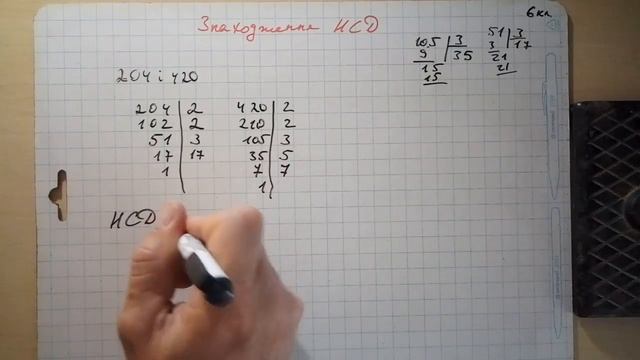 6 кл.
Знаходження НСД
204 і 420
204 | 2
102 | 2
51 | 3
17 | 17
1
420 | 2
210 | 2
105 | 3
35 | 5
7 | 7
1
НСД
105 | 3
9 | 35
15
15
51 | 3
3 | 17
21
21